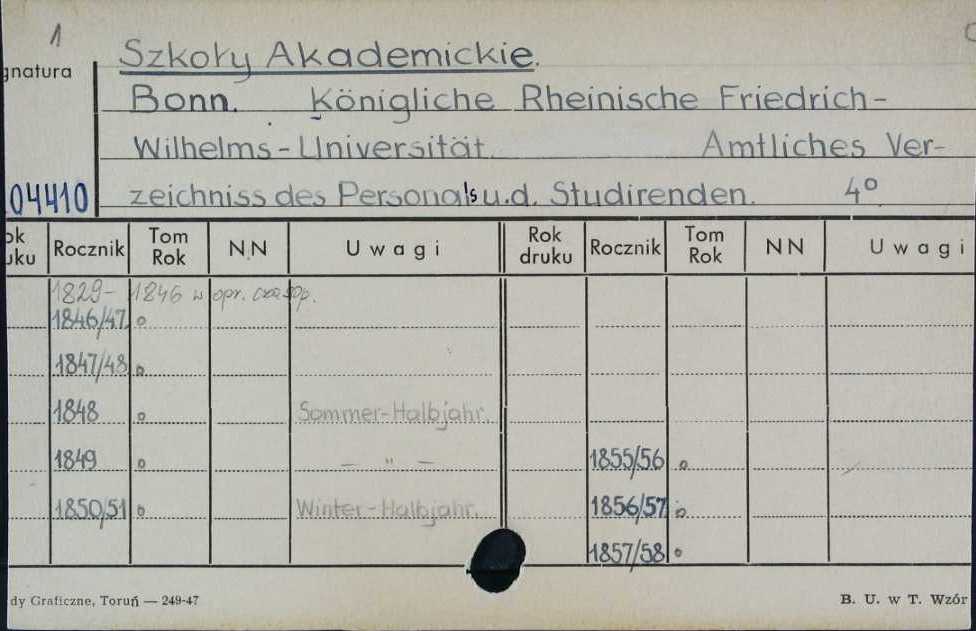 1
Szkoły Akademickie.
gnatura
Bonn. Königliche Rheinische Friedrich-
Wilhelms-Universität. Amtliches Ver-
04410 zeichniss des Personals u. d. Studirenden. 4°
ok uku Rocznik Tom Rok NN Uwagi Rok druku Rocznik Tom Rok NN Uwagi
1829- 1846 w opr. czasop.
1846/47 o
1847/48 o
1848 o Sommer-Halbjahr.
1849 o — " — 1855/56 o
1850/51 o Winter-Halbjahr. 1856/57 o
1857/58 o
dy Graficzne, Toruń — 249-47 B. U. w T. Wzór